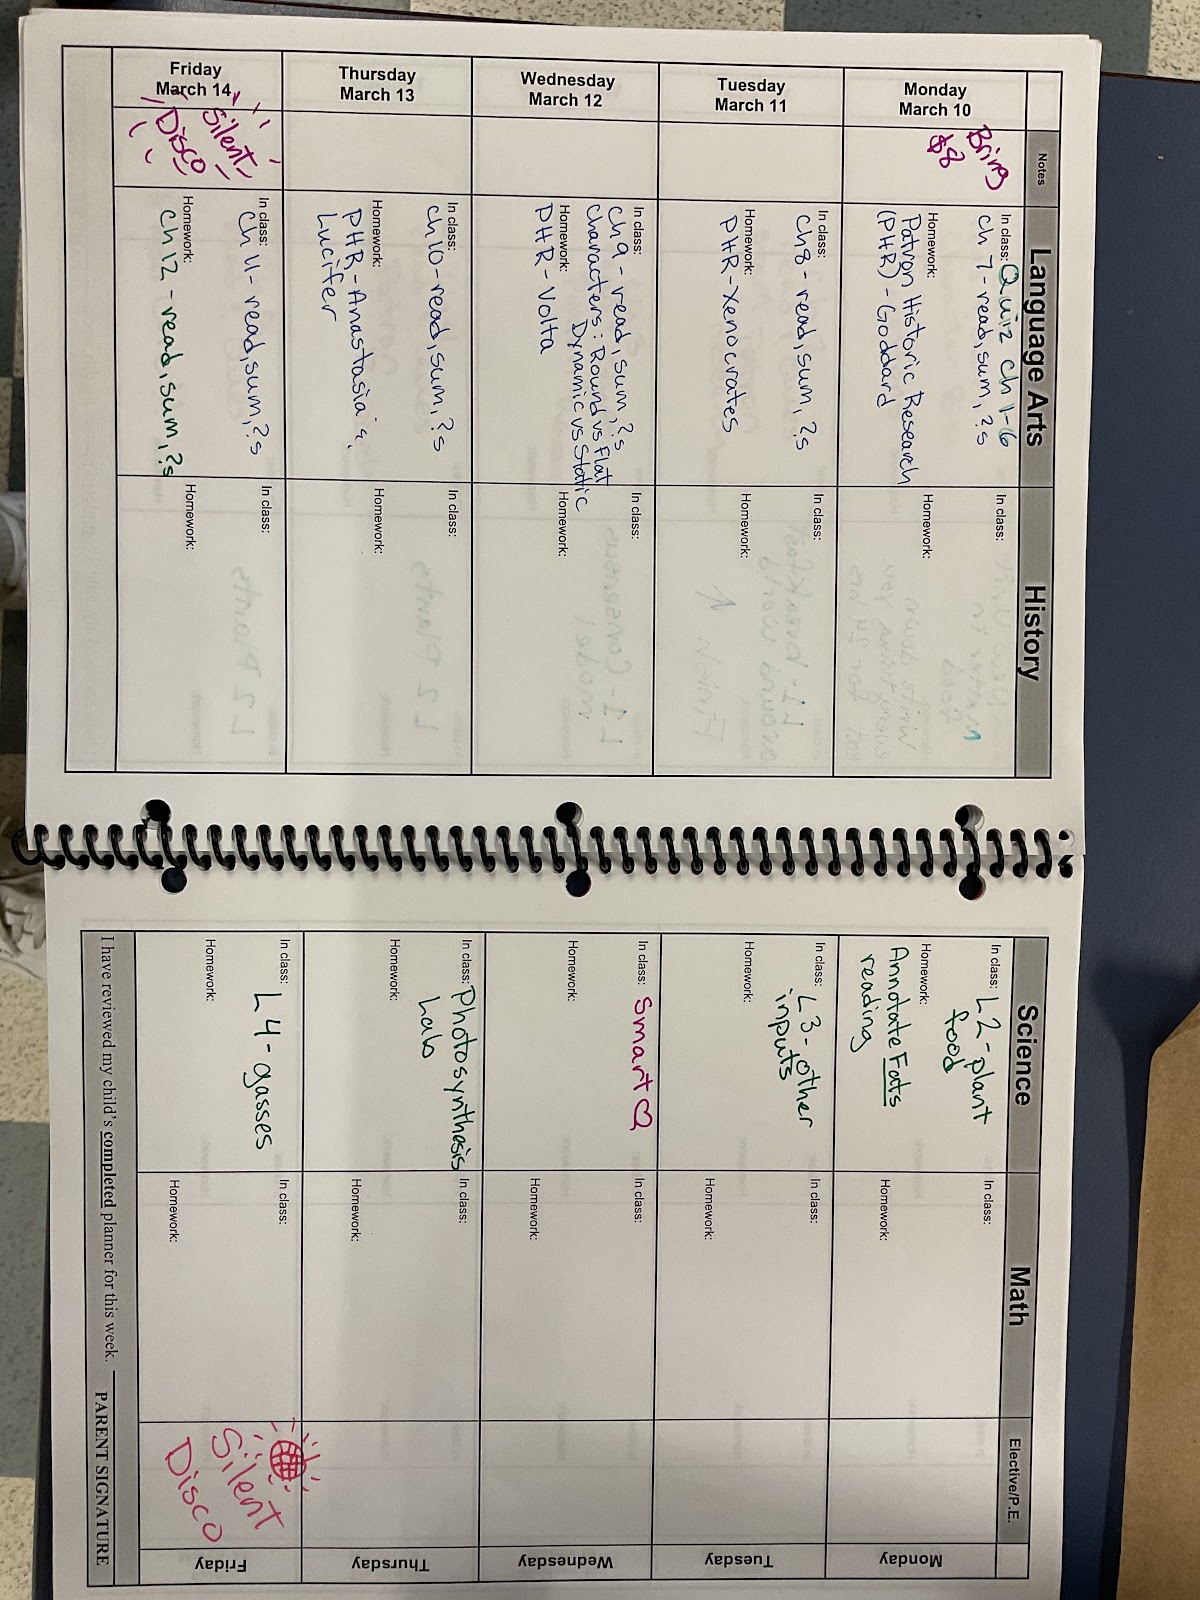 Notes
Language Arts
History
Monday
March 10
Bring
$8
In class: Quiz ch 1-6
ch 7 - read, sum, ?s
Homework:
Patron Historic Research
(PHR) - Goddard
In class:
Homework:
Tuesday
March 11
In class:
ch 8 - read, sum, ?s
Homework:
PHR - Xenocrates
In class:
Homework:
Wednesday
March 12
In class:
ch 9 - read, sum, ?s
characters: Round vs Flat
Dynamic vs Static
Homework:
PHR - Volta
In class:
Homework:
Thursday
March 13
In class:
ch 10 - read, sum, ?s
Homework:
PHR - Anastasia &
Lucifer
In class:
Homework:
Friday
March 14
Silent
Disco
In class:
ch 11 - read, sum, ?s
Homework:
ch 12 - read, sum, ?s
In class:
Homework:
Science
Math
Elective/P.E.
In class: L2 - plant
food
Homework:
Annotate Fats
reading
In class:
Homework:
Monday
In class: L3 - other
inputs
Homework:
In class:
Homework:
Tuesday
In class: Smart Q
Homework:
In class:
Homework:
Wednesday
In class: Photosynthesis
Lab
Homework:
In class:
Homework:
Thursday
In class: L4 - gasses
Homework:
In class:
Homework:
Silent
Disco
Friday
I have reviewed my child's completed planner for this week.
PARENT SIGNATURE